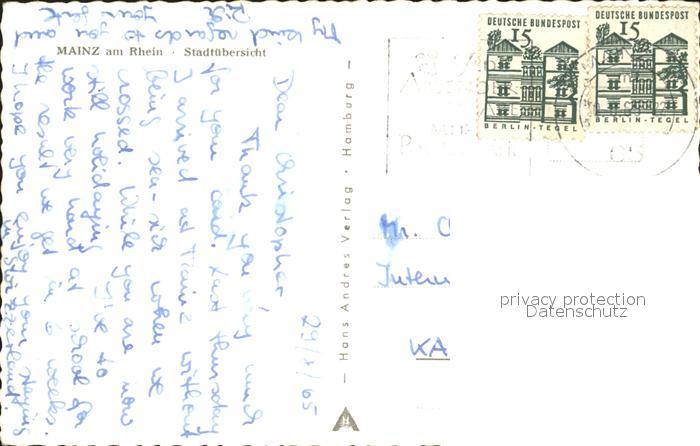 MAINZ am Rhein · Stadtübersicht
29/8/65
Dear Christopher
Thank you very much
for your card. Last thursday
I arrived at Mainz without
being sea-sick when we
crossed. While you are now
still holidaying I've to
work very hard at school for
the result we get in 6 weeks.
I hope you enjoy your staying
in
My kind regards to you and
your
— Hans Andres Verlag · Hamburg —
DEUTSCHE BUNDESPOST
15
BERLIN-TEGEL
DEUTSCHE BUNDESPOST
15
BERLIN-TEGEL
Mr. C
Intern
KA
privacy protection
Datenschutz